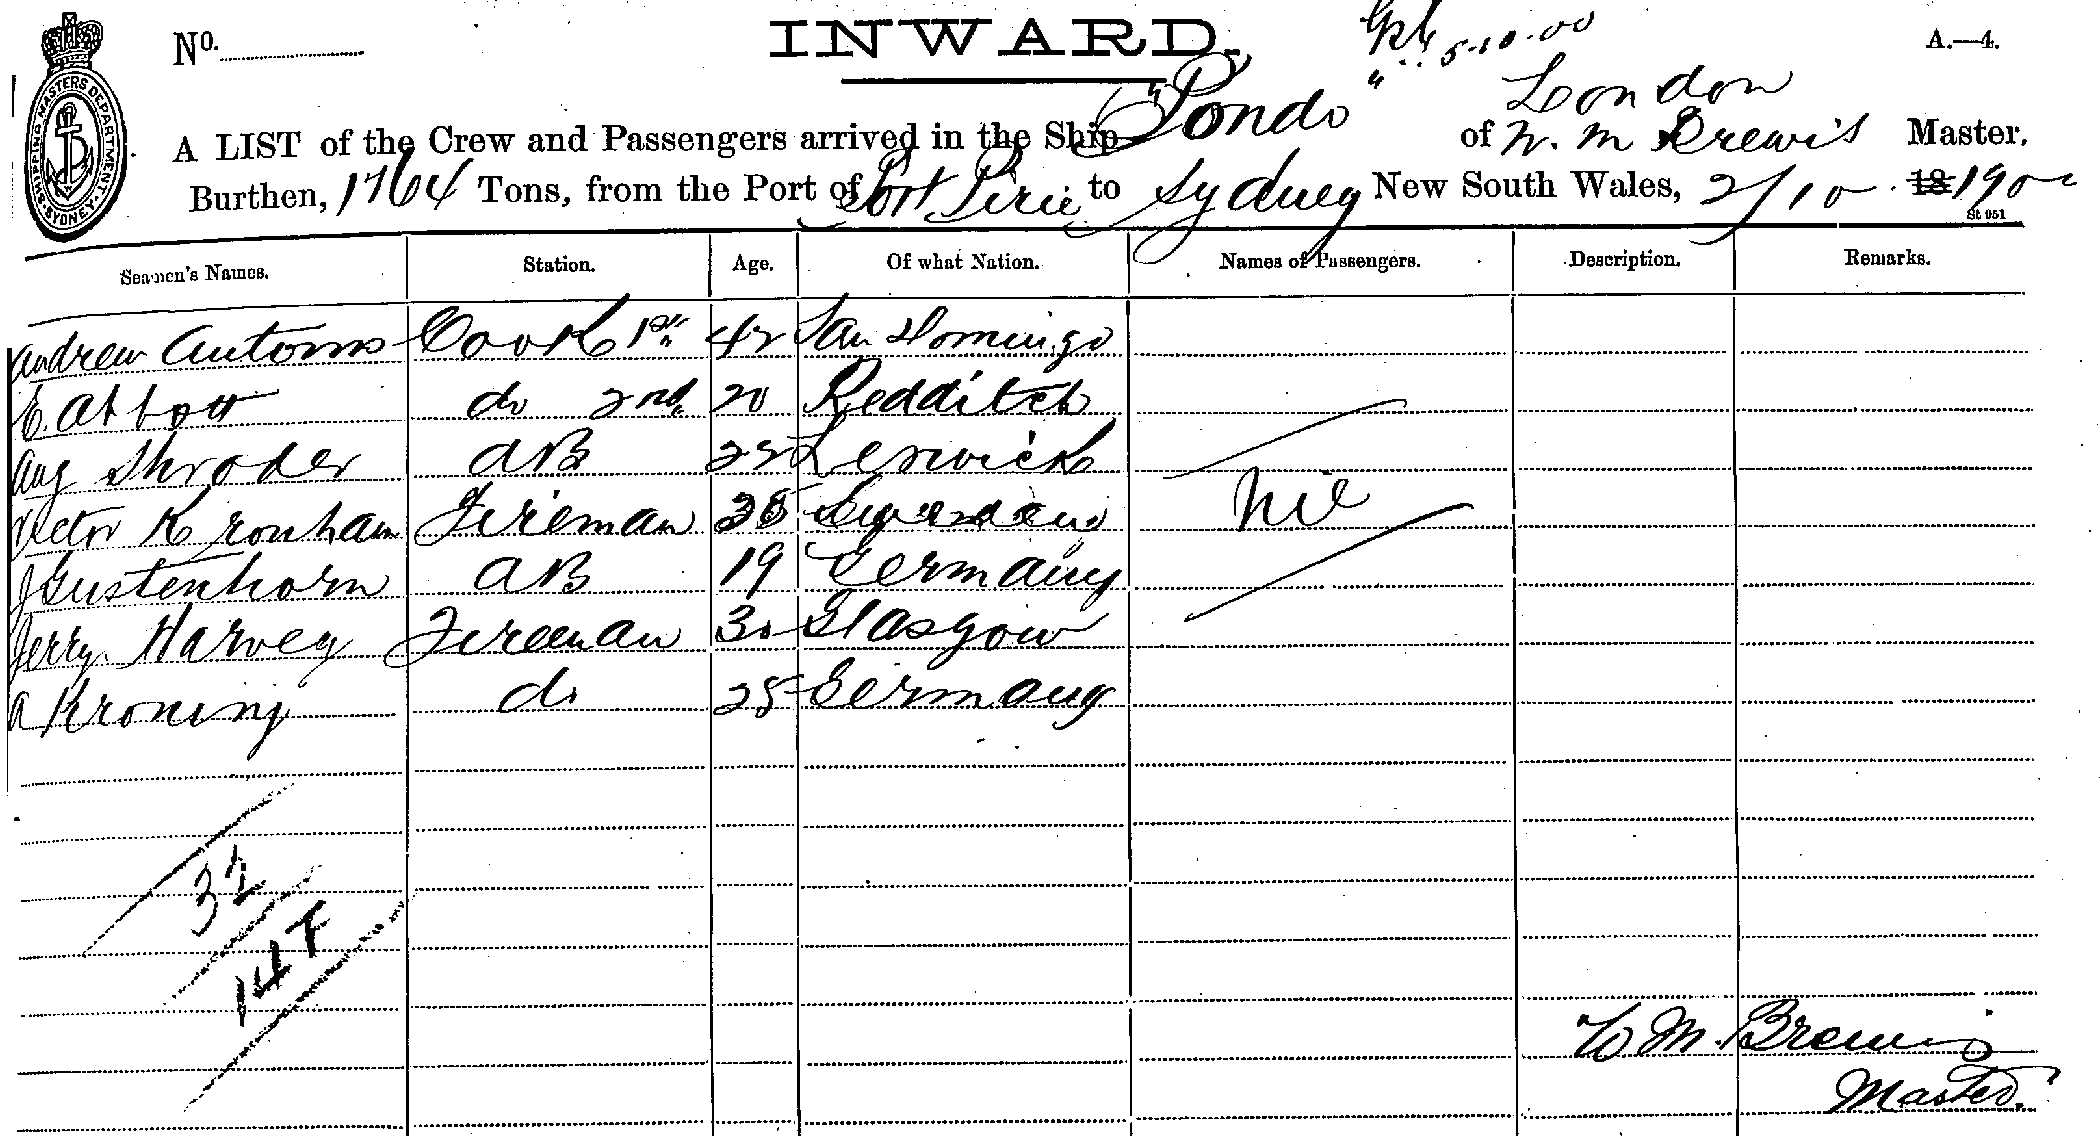 SHIPPING MASTERS DEPARTMENT. SYDNEY.
No.
INWARD.
5-10-00
A.—4.
London
A LIST of the Crew and Passengers arrived in the Ship "Pondo" of W. M Brewis Master,
Burthen, 1764 Tons, from the Port of Port Pirie to Sydney New South Wales, 2/10 18 1900
St 951
Seamen's Names. Station. Age. Of what Nation. Names of Passengers. Description. Remarks.
Andrew Cook 1st 42 San Domingo
E. Abbott do 2nd 20 Redditch
Aug Shroder AB Lerwick
Victor Kronham Fireman Sweden Nil
J Gustenhorn AB 19 Germany
Jerry Harvey Fireman 30 Glasgow
A Kroning do 25 Germany
32
14 F
W M. Brewis
Master.